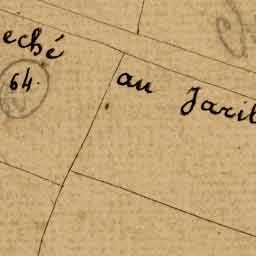 eché
64.
au Jaril